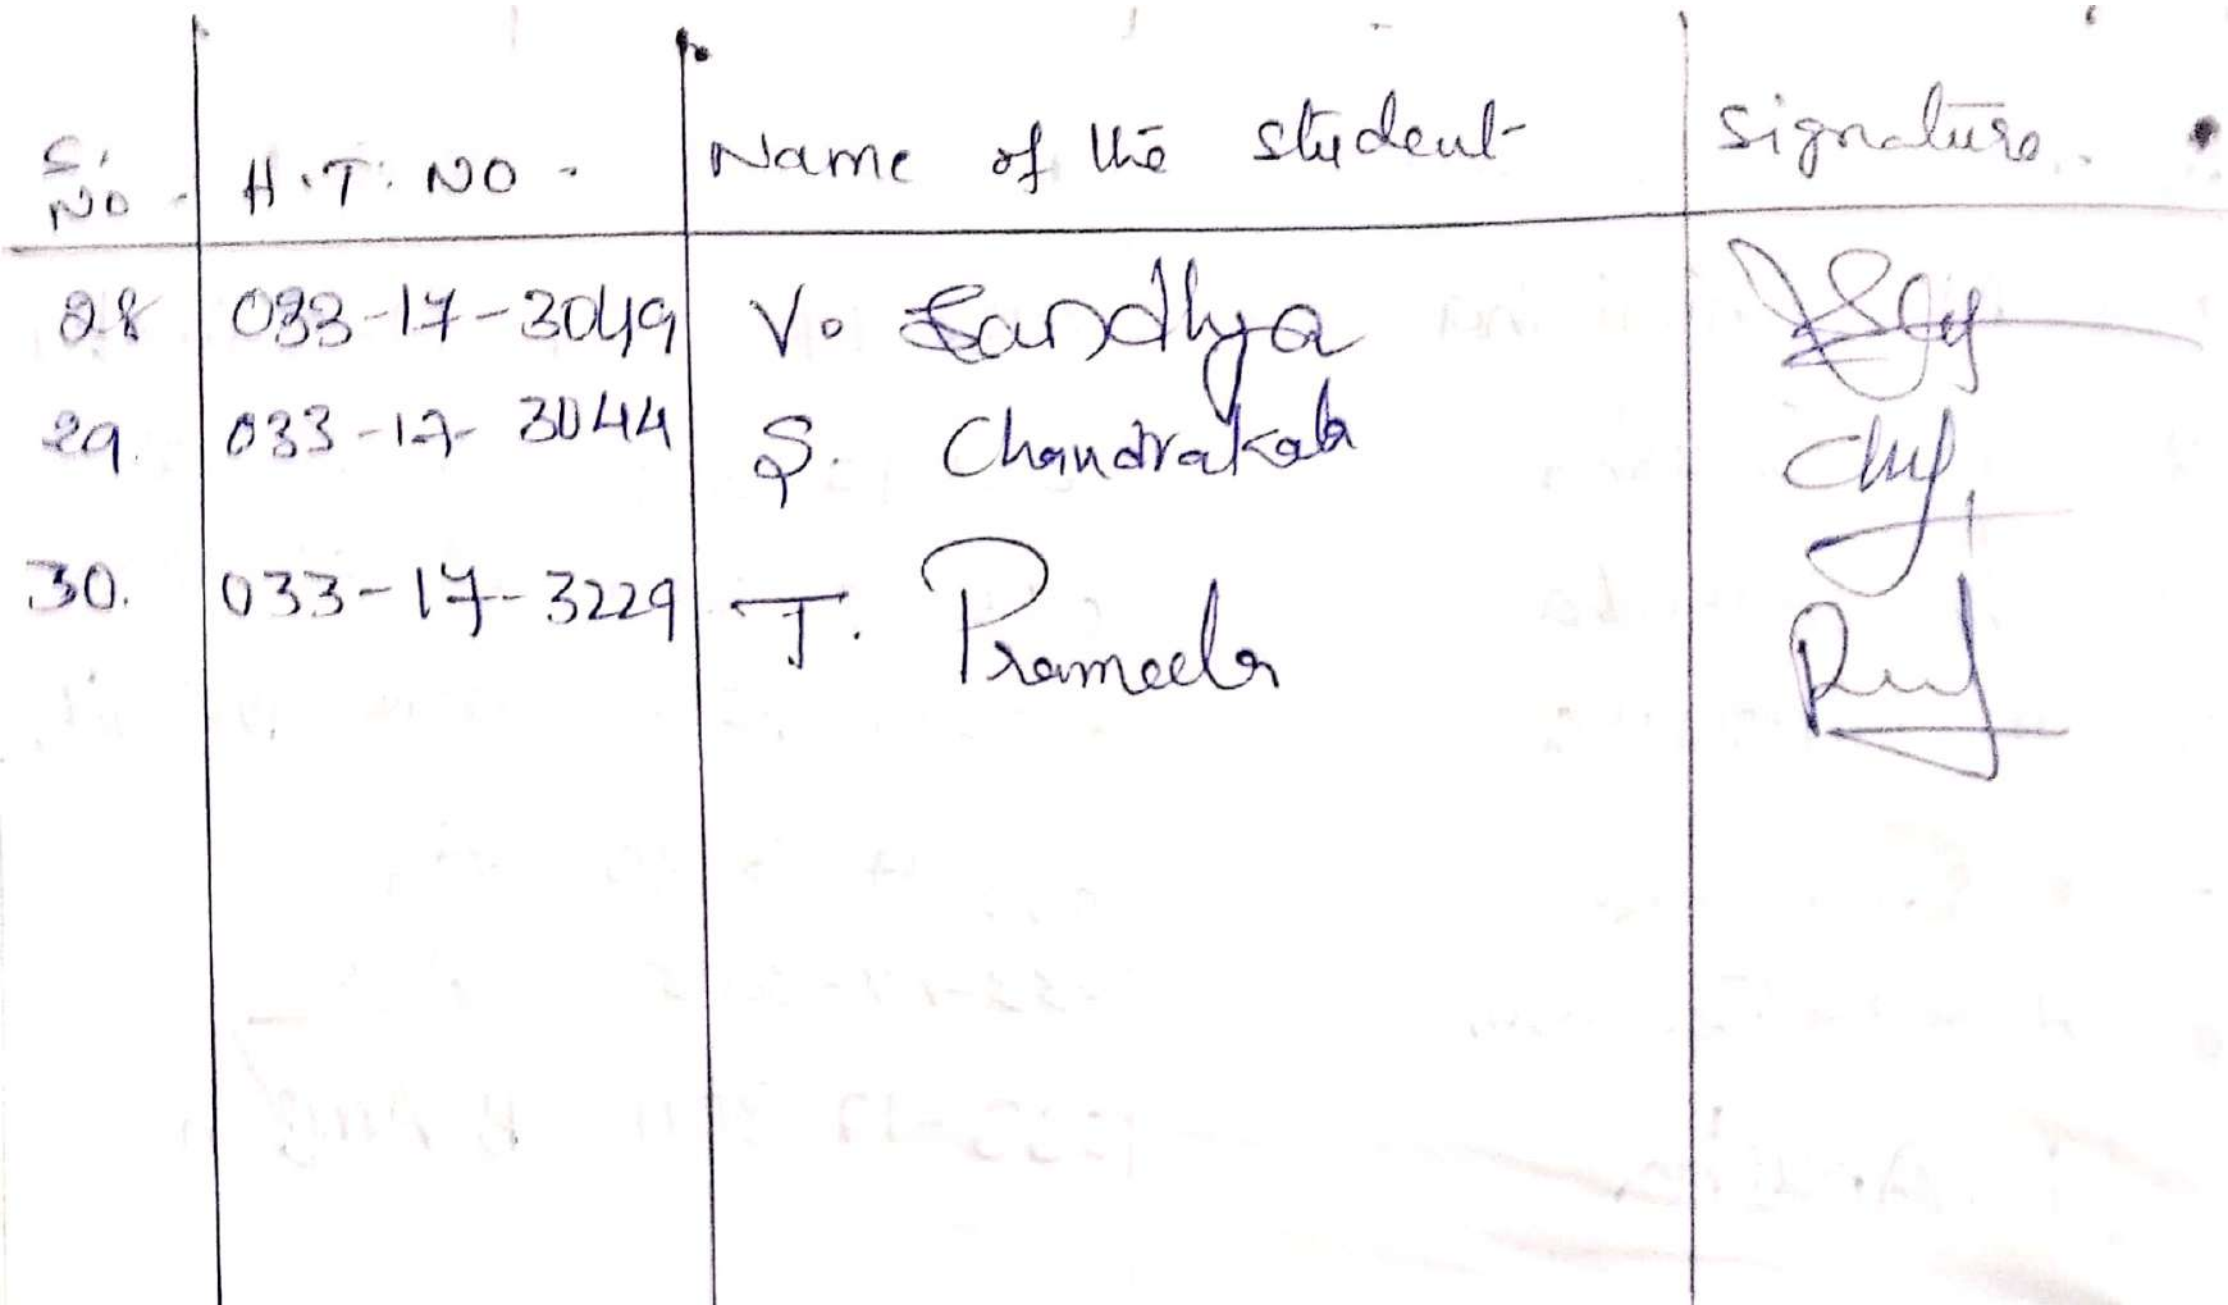 S. NO. H.T. NO. Name of the student Signature.
28 033-17-3049 V. Sandhya
29. 033-17-3044 S. Chandrakala
30. 033-17-3229 T. Prameela